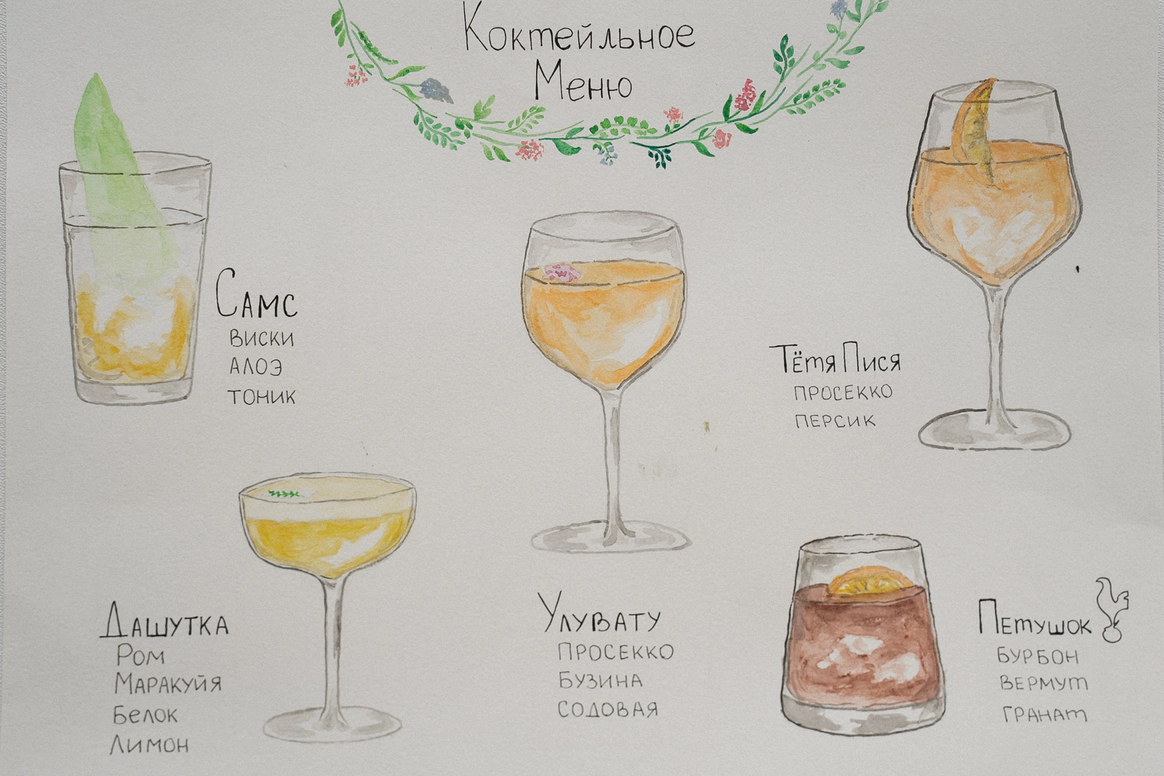 Коктейльное
Меню
Самс
виски
алоэ
тоник
Тётя Пися
просекко
персик
Дашутка
Ром
Маракуйя
Белок
Лимон
Улувату
просекко
бузина
содовая
Петушок
бурбон
вермут
гранат